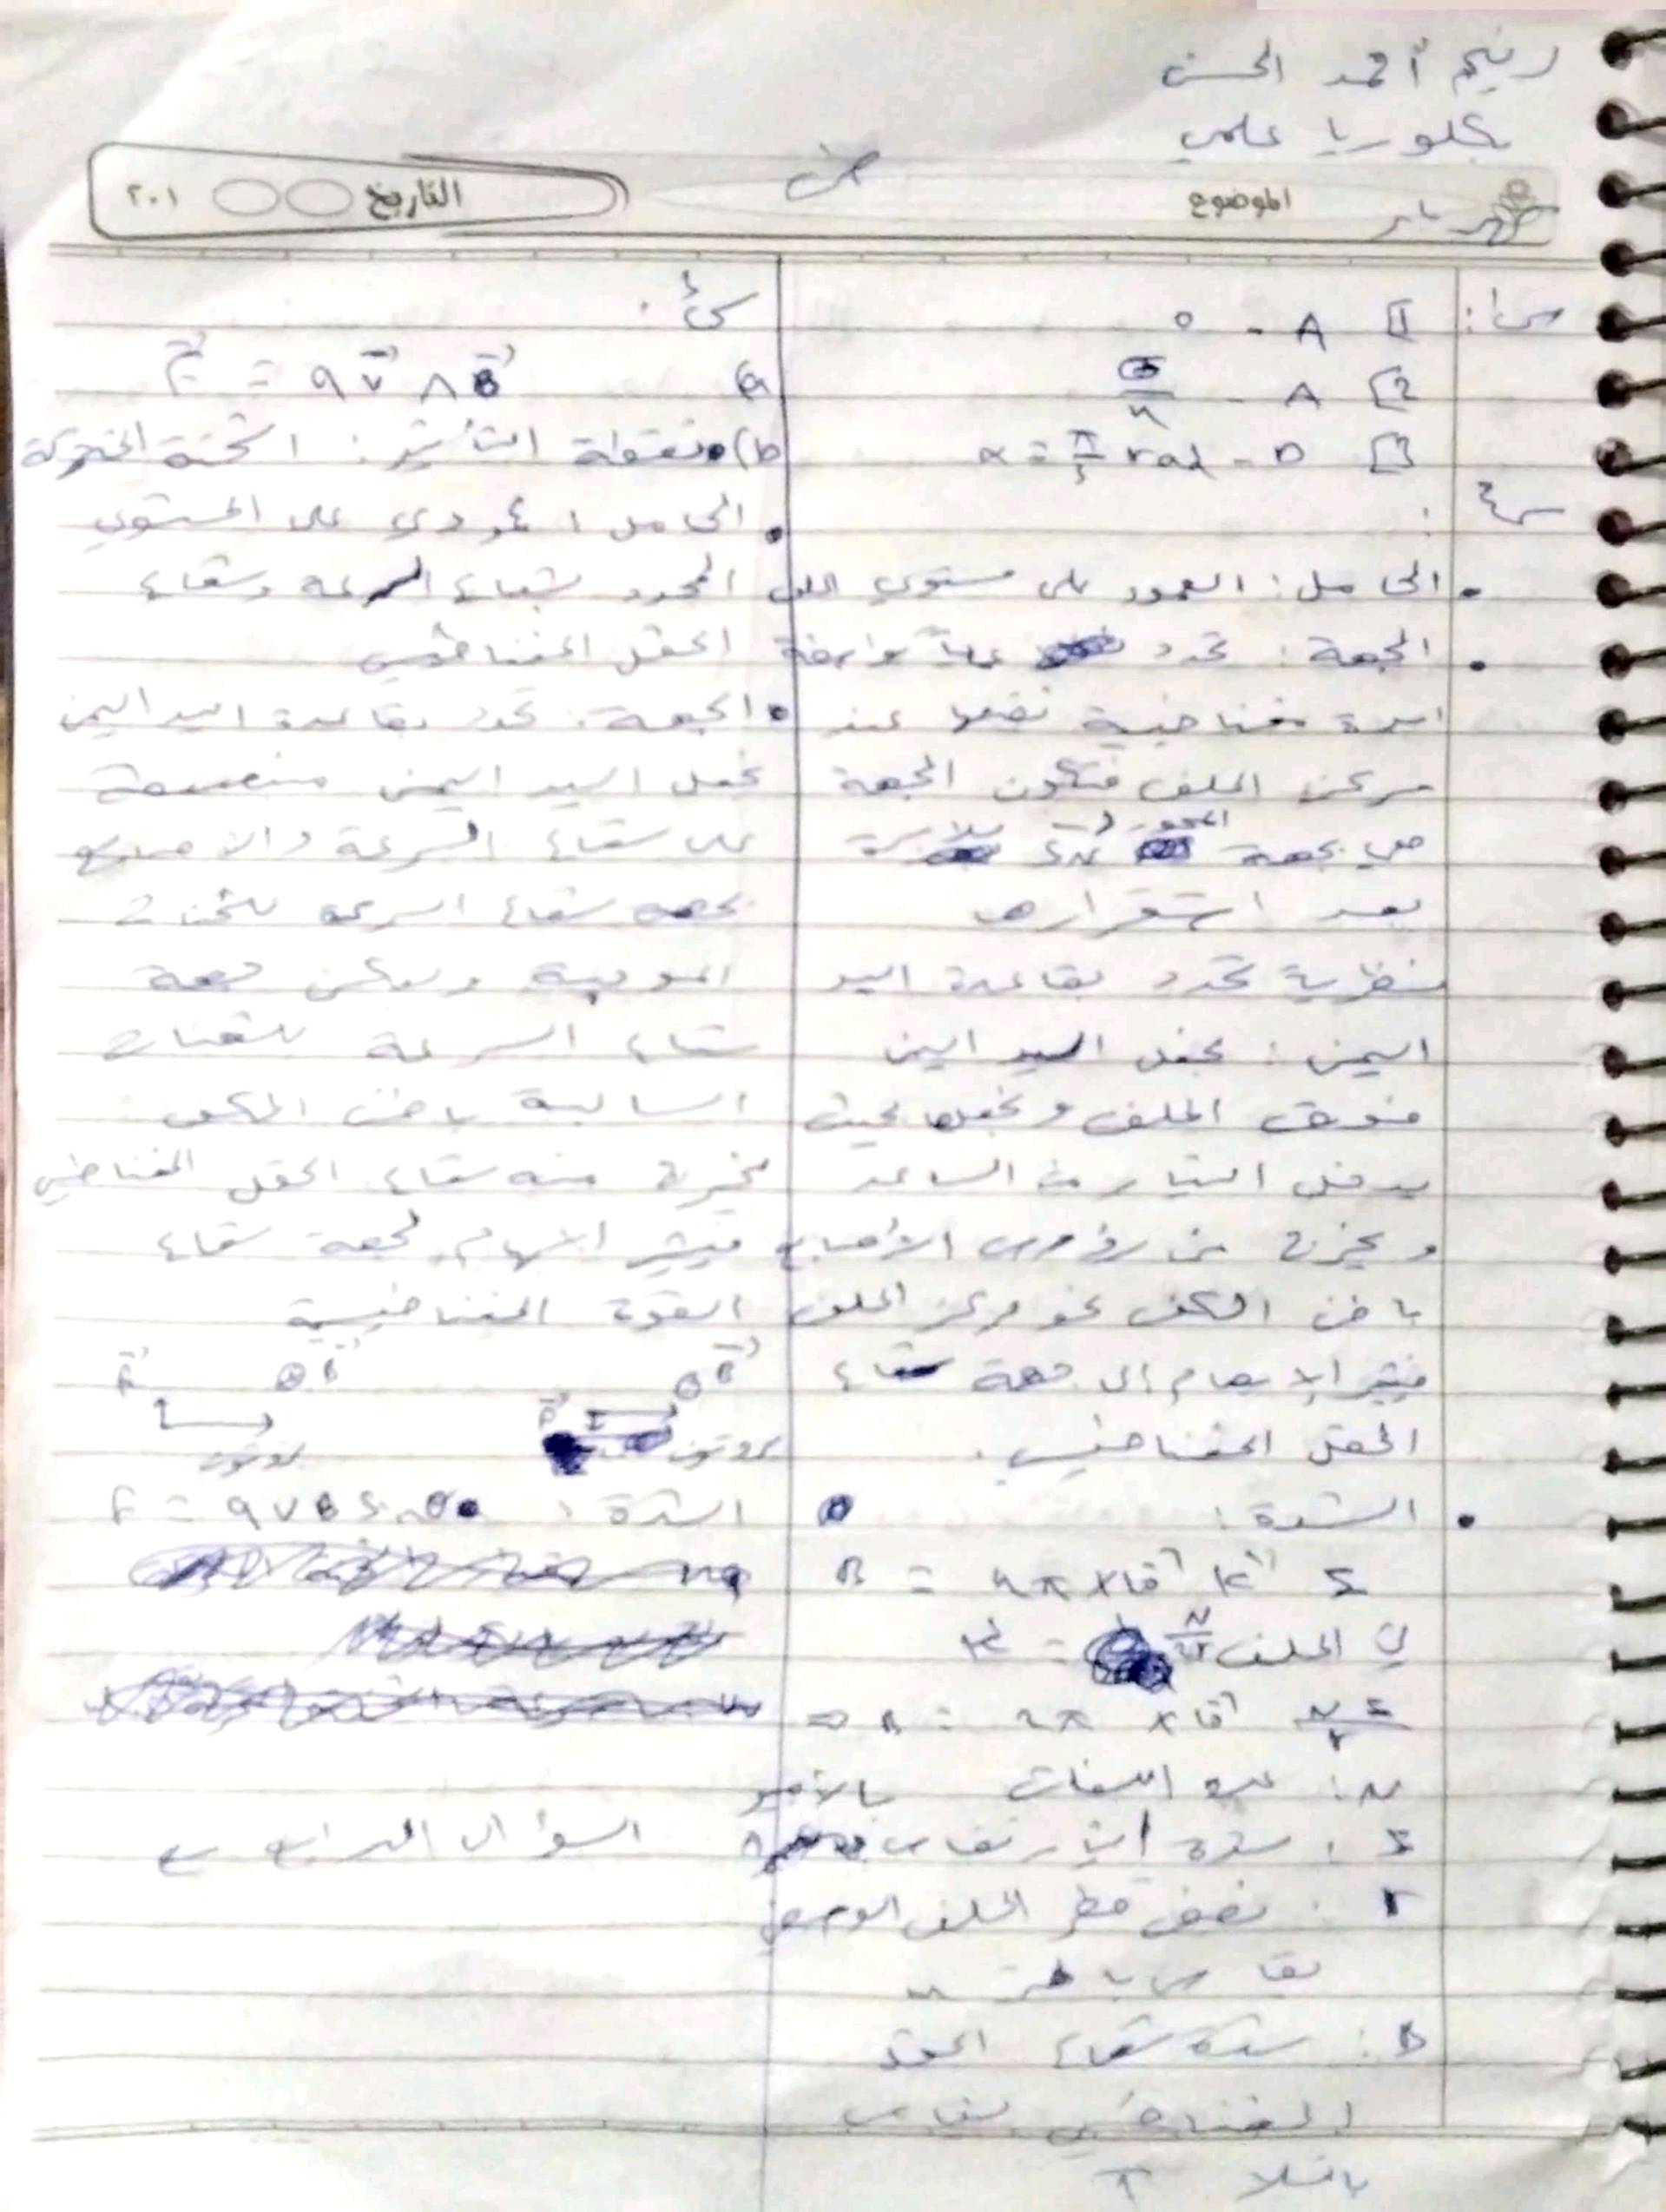 رنيم أحمد الحسن
بكلوريا علمي
الموضوع
التاريخ ٢٠١
س١:
1 A - 0
2 A -
3 D - α = π/2 rad
س٢:
• الحامل: العمود على مستوي الملف
• الجهة: تحدد عملياً بواسطة
ابرة مغناطيسية نضعها عند
مركز الملف فتكون الجهة
هي جهة المحور
بعد استقرارها
نظرياً تحدد بقاعدة اليد
اليمنى: نجعل اليد اليمنى
فوق الملف ونجعلها بحيث
يدخل التيار من الساعد
ويخرج من رؤوس الأصابع
باطن الكف نحو مركز الملف
فيشير الإبهام إلى جهة شعاع
الحقل المغناطيسي.
• الشدة:
B = 4π × 10⁻⁷ k' I
في الملف k' = N/2r
⇒ B = 2π × 10⁻⁷ N I / r
N: عدد اللفات
I: شدة التيار تقاس بالأمبير A
r: نصف قطر الملف الوسطي
يقاس بالمتر m
B: شدة شعاع الحقل
المغناطيسي تقاس
بالتسلا T
س٣:
a) F = q v ∧ B
b) • نقطة التأثير: الشحنة المتحركة
• الحامل: عمودي على المستوي
المحدد بشعاع السرعة وشعاع
الحقل المغناطيسي
• الجهة: تحدد بقاعدة اليد اليمنى
نجعل اليد اليمنى منبسطة
على شعاع السرعة والأصابع
بجهة شعاع السرعة للشحنات
الموجبة وبعكس جهة
شعاع السرعة للشحنات
السالبة باطن الكف
يخرج منه شعاع الحقل المغناطيسي
فيشير الإبهام لجهة شعاع
القوة المغناطيسية
F B
F B
بروتون
الشدة: F = q v B sin θ
السؤال الرابع